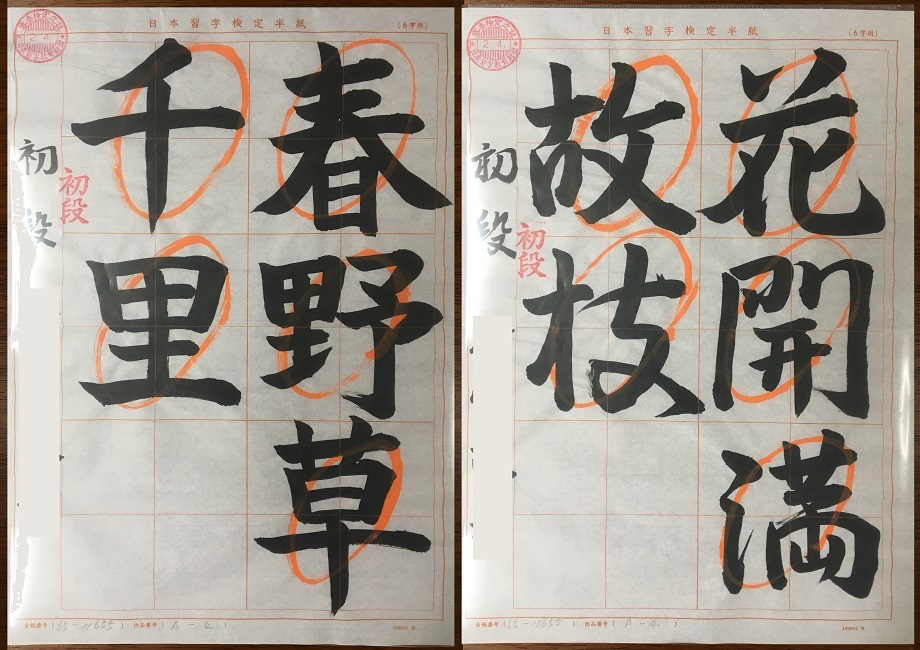 日本習字検定半紙
(6字用)
春野草
千里
初段
初段
(55-11655) 出品番号 (A-2)
日本習字検定半紙
(6字用)
花開満
故枝
初段
初段
(55-11655) 出品番号 (A-2)